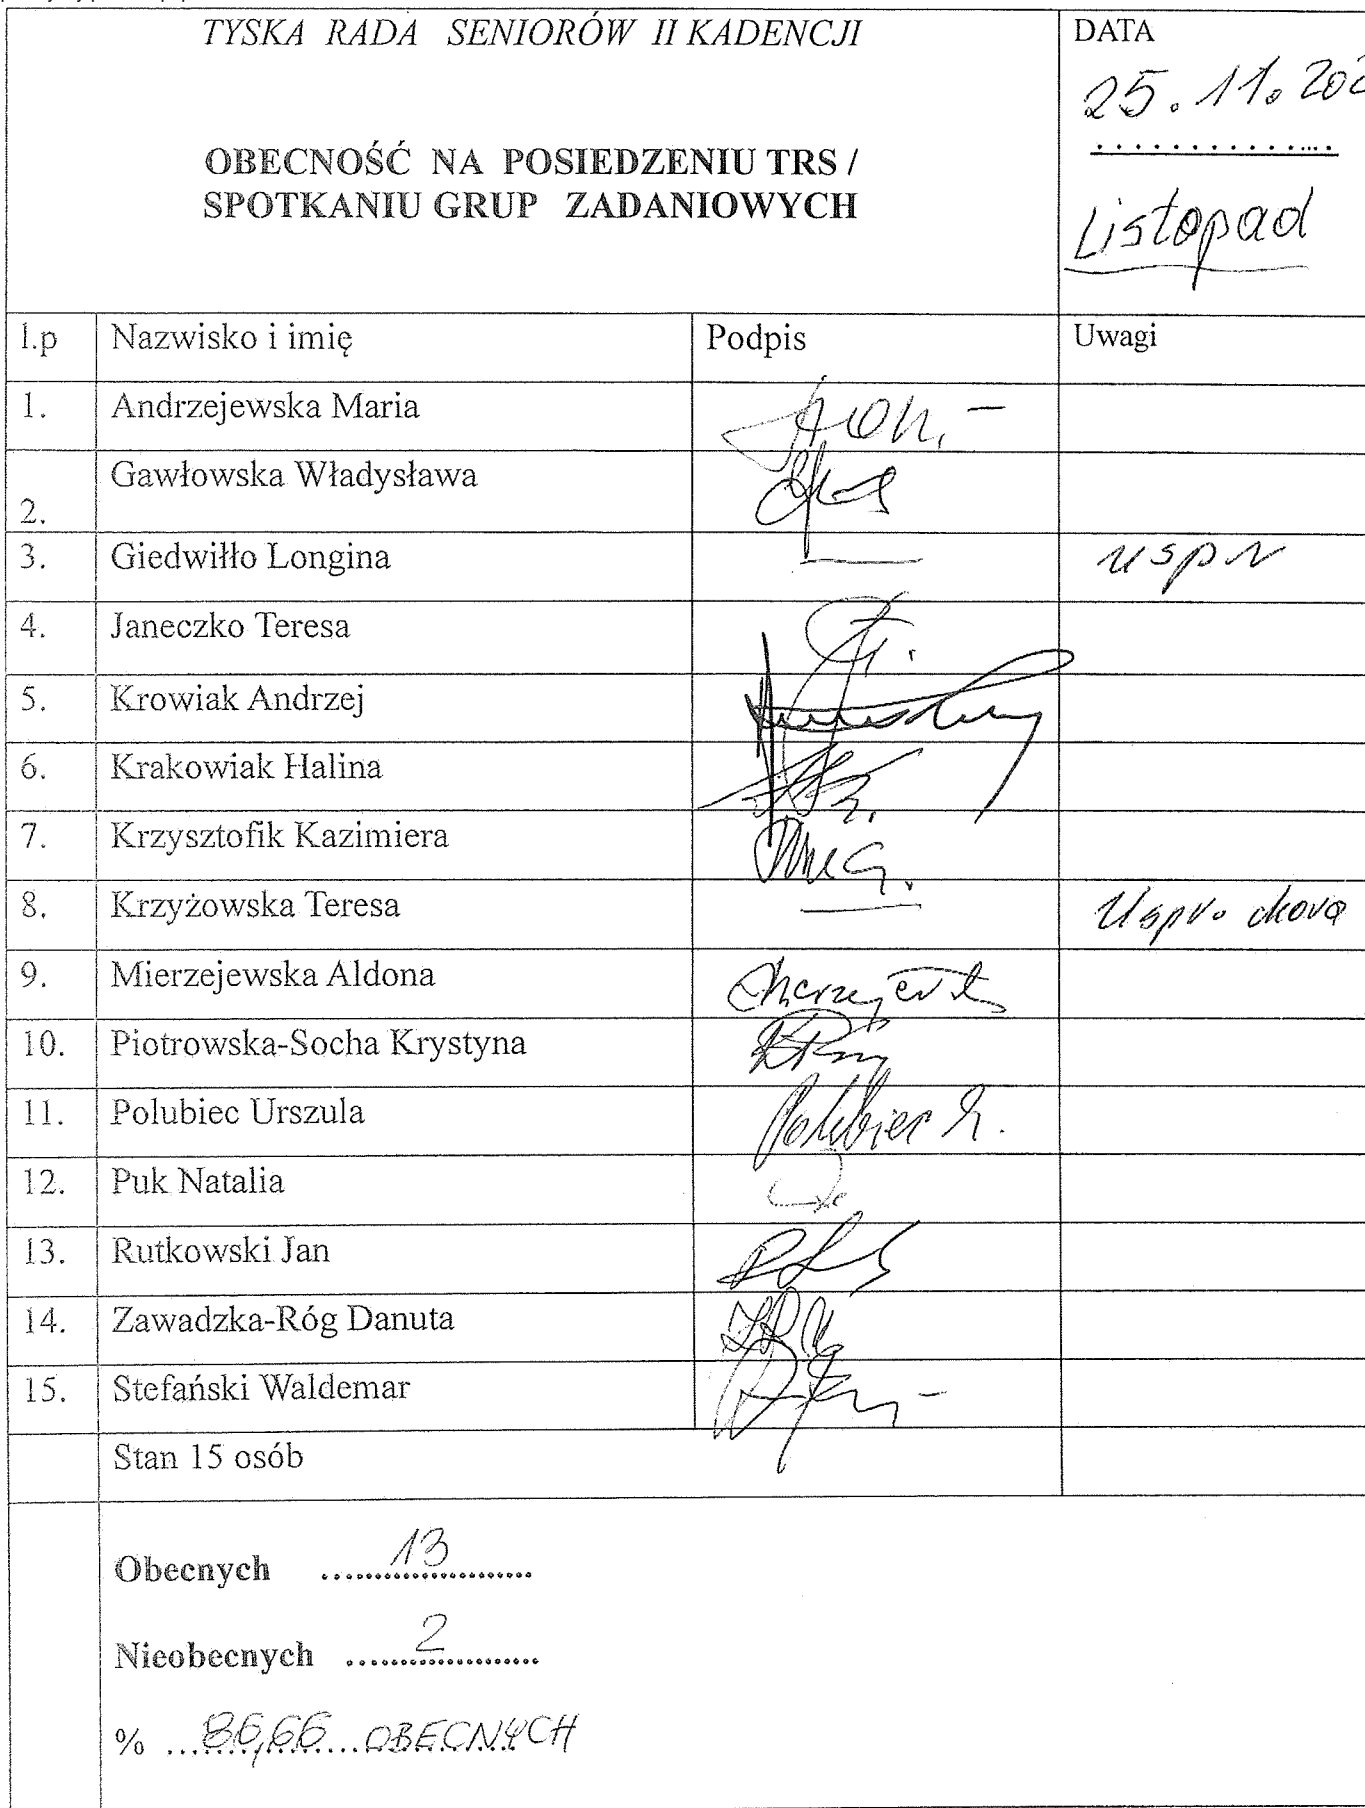 TYSKA RADA SENIORÓW II KADENCJI
DATA
25.11.202
OBECNOŚĆ NA POSIEDZENIU TRS /
SPOTKANIU GRUP ZADANIOWYCH
Listopad
l.p Nazwisko i imię Podpis Uwagi
1. Andrzejewska Maria
2. Gawłowska Władysława
3. Giedwiłło Longina uspr
4. Janeczko Teresa
5. Krowiak Andrzej
6. Krakowiak Halina
7. Krzysztofik Kazimiera
8. Krzyżowska Teresa Uspr. chora
9. Mierzejewska Aldona
10. Piotrowska-Socha Krystyna
11. Polubiec Urszula Polubiec
12. Puk Natalia
13. Rutkowski Jan
14. Zawadzka-Róg Danuta
15. Stefański Waldemar
Stan 15 osób
Obecnych 13
Nieobecnych 2
% 86,66 OBECNYCH